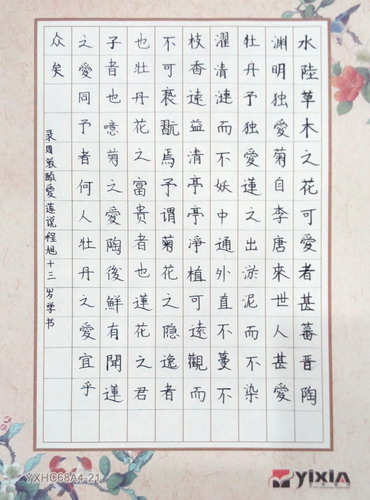 水陸草木之花可愛者甚蕃晋陶
渊明独愛菊自李唐來世人甚愛
牡丹予独愛蓮之出淤泥而不染
濯清漣而不妖中通外直不蔓不
枝香遠益清亭亭淨植可遠觀而
不可亵翫焉予謂菊花之隐逸者
也牡丹花之富贵者也蓮花之君
子者也噫菊之愛陶後鮮有聞蓮
之愛同予者何人牡丹之愛宜乎
众矣
录周敦颐愛莲说程旭十三岁学书
YXHC68A4-21
yixia